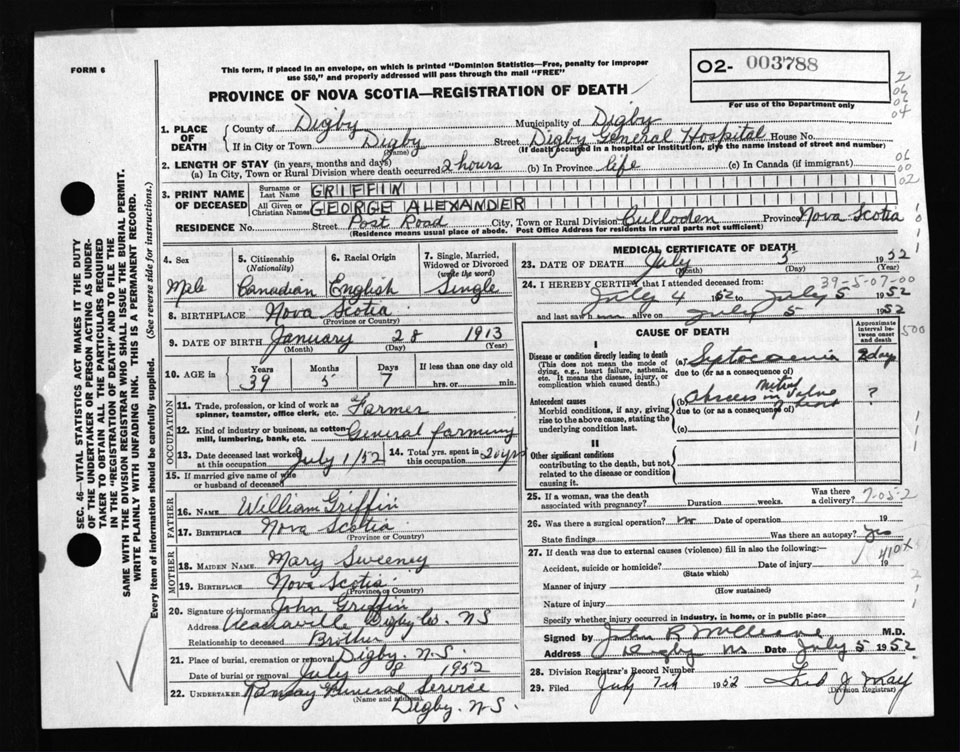 FORM 6
This form, if placed in an envelope, on which is printed "Dominion Statistics—Free, penalty for improper
use $50," and properly addressed will pass through the mail "FREE"
PROVINCE OF NOVA SCOTIA—REGISTRATION OF DEATH
02- 003788
For use of the Department only
2
06
06
04
1. PLACE OF DEATH
County of Digby Municipality of Digby
If in City or Town Digby Street Digby General Hospital House No.
(Name) (If death occurred in a hospital or institution, give the name instead of street and number)
2. LENGTH OF STAY (in years, months and days)
(a) In City, Town or Rural Division where death occurred 2 hours (b) In Province life (c) In Canada (if immigrant)
06
00
02
3. PRINT NAME OF DECEASED
Surname or Last Name GRIFFIN
All Given or Christian Names GEORGE ALEXANDER
RESIDENCE No. Street Post Road City, Town or Rural Division Culloden Province Nova Scotia
(Residence means usual place of abode. Post Office Address for residents in rural parts not sufficient)
4. Sex Male
5. Citizenship (Nationality) Canadian
6. Racial Origin English
7. Single, Married, Widowed or Divorced (write the word) Single
8. BIRTHPLACE Nova Scotia
(Province or Country)
9. DATE OF BIRTH January 28 1913
(Month) (Day) (Year)
10. AGE in Years 39 Months 5 Days 7 If less than one day old hrs. or min.
OCCUPATION
11. Trade, profession, or kind of work as spinner, teamster, office clerk, etc. Farmer
12. Kind of industry or business, as cotton-mill, lumbering, bank, etc. General farming
13. Date deceased last worked at this occupation July 1/52
14. Total yrs. spent in this occupation 20 yrs
15. If married give name of wife or husband of deceased
FATHER
16. NAME William Griffin
17. BIRTHPLACE Nova Scotia
(Province or Country)
MOTHER
18. MAIDEN NAME Mary Sweeney
19. BIRTHPLACE Nova Scotia
(Province or Country)
20. Signature of informant John Griffin
Address Digby Co. NS
Relationship to deceased Brother
21. Place of burial, cremation or removal Digby. N.S.
Date of burial or removal July 8 1952
22. UNDERTAKER Ramsay Funeral Service
(Name and address)
Digby. N.S.
MEDICAL CERTIFICATE OF DEATH
23. DATE OF DEATH July 5 1952
(Month) (Day) (Year)
39-5-07-00
24. I HEREBY CERTIFY that I attended deceased from:
July 4 1952 to July 5 1952
and last saw him alive on July 5 1952
CAUSE OF DEATH
Approximate interval between onset and death
500
I
Disease or condition directly leading to death
(This does not mean the mode of dying, e.g., heart failure, asthenia, etc. It means the disease, injury, or complication which caused death.)
(a)
due to (or as a consequence of)
days
Antecedent causes
Morbid conditions, if any, giving rise to the above cause, stating the underlying condition last.
(b) Abscess in Mitral Valve
due to (or as a consequence of)
?
(c)
II
Other significant conditions
contributing to the death, but not related to the disease or condition causing it.
25. If a woman, was the death associated with pregnancy? Duration weeks. Was there a delivery?
7-05-2
26. Was there a surgical operation? no Date of operation 19
State findings Was there an autopsy? yes
27. If death was due to external causes (violence) fill in also the following:—
410X
Accident, suicide or homicide? Date of injury 19
(State which)
Manner of injury
(How sustained)
Nature of injury
Specify whether injury occurred in industry, in home, or in public place
Signed by John R M.D.
Address Digby NS Date July 5 1952.
28. Division Registrar's Record Number
29. Filed July 7th 1952 Fred J May
(Division Registrar)
SEC. 46—VITAL STATISTICS ACT MAKES IT THE DUTY
OF THE UNDERTAKER OR PERSON ACTING AS UNDER-
TAKER TO OBTAIN ALL THE PARTICULARS REQUIRED
IN THE "REGISTRATION OF DEATH" AND TO FILE THE
SAME WITH THE DIVISION REGISTRAR WHO SHALL ISSUE THE BURIAL PERMIT.
WRITE PLAINLY WITH UNFADING INK. THIS IS A PERMANENT RECORD.
Every item of information should be carefully supplied. (See reverse side for instructions.)